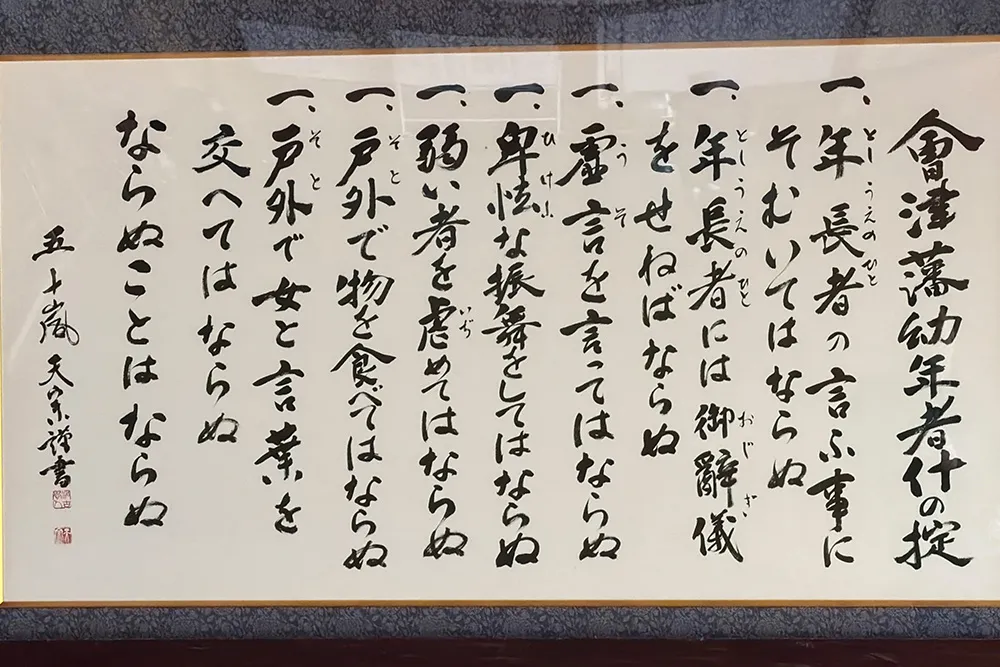 會津藩幼年者什の掟
一、年長者の言ふ事に
そむいてはならぬ
一、年長者には御辭儀
をせねばならぬ
一、虚言を言ってはならぬ
一、卑怯な振舞をしてはならぬ
一、弱い者を虐めてはならぬ
一、戸外で物を食べてはならぬ
一、戸外で女と言葉を
交へてはならぬ
ならぬことはならぬ
五十嵐天宗謹書